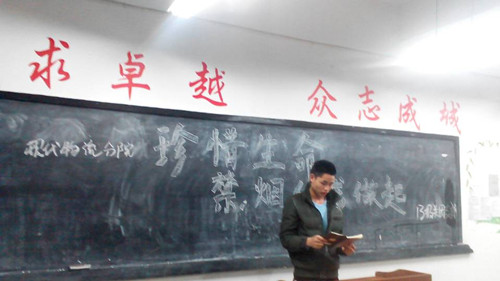 求卓越 众志成城
现代物流分院
珍惜生命
禁烟 我做起